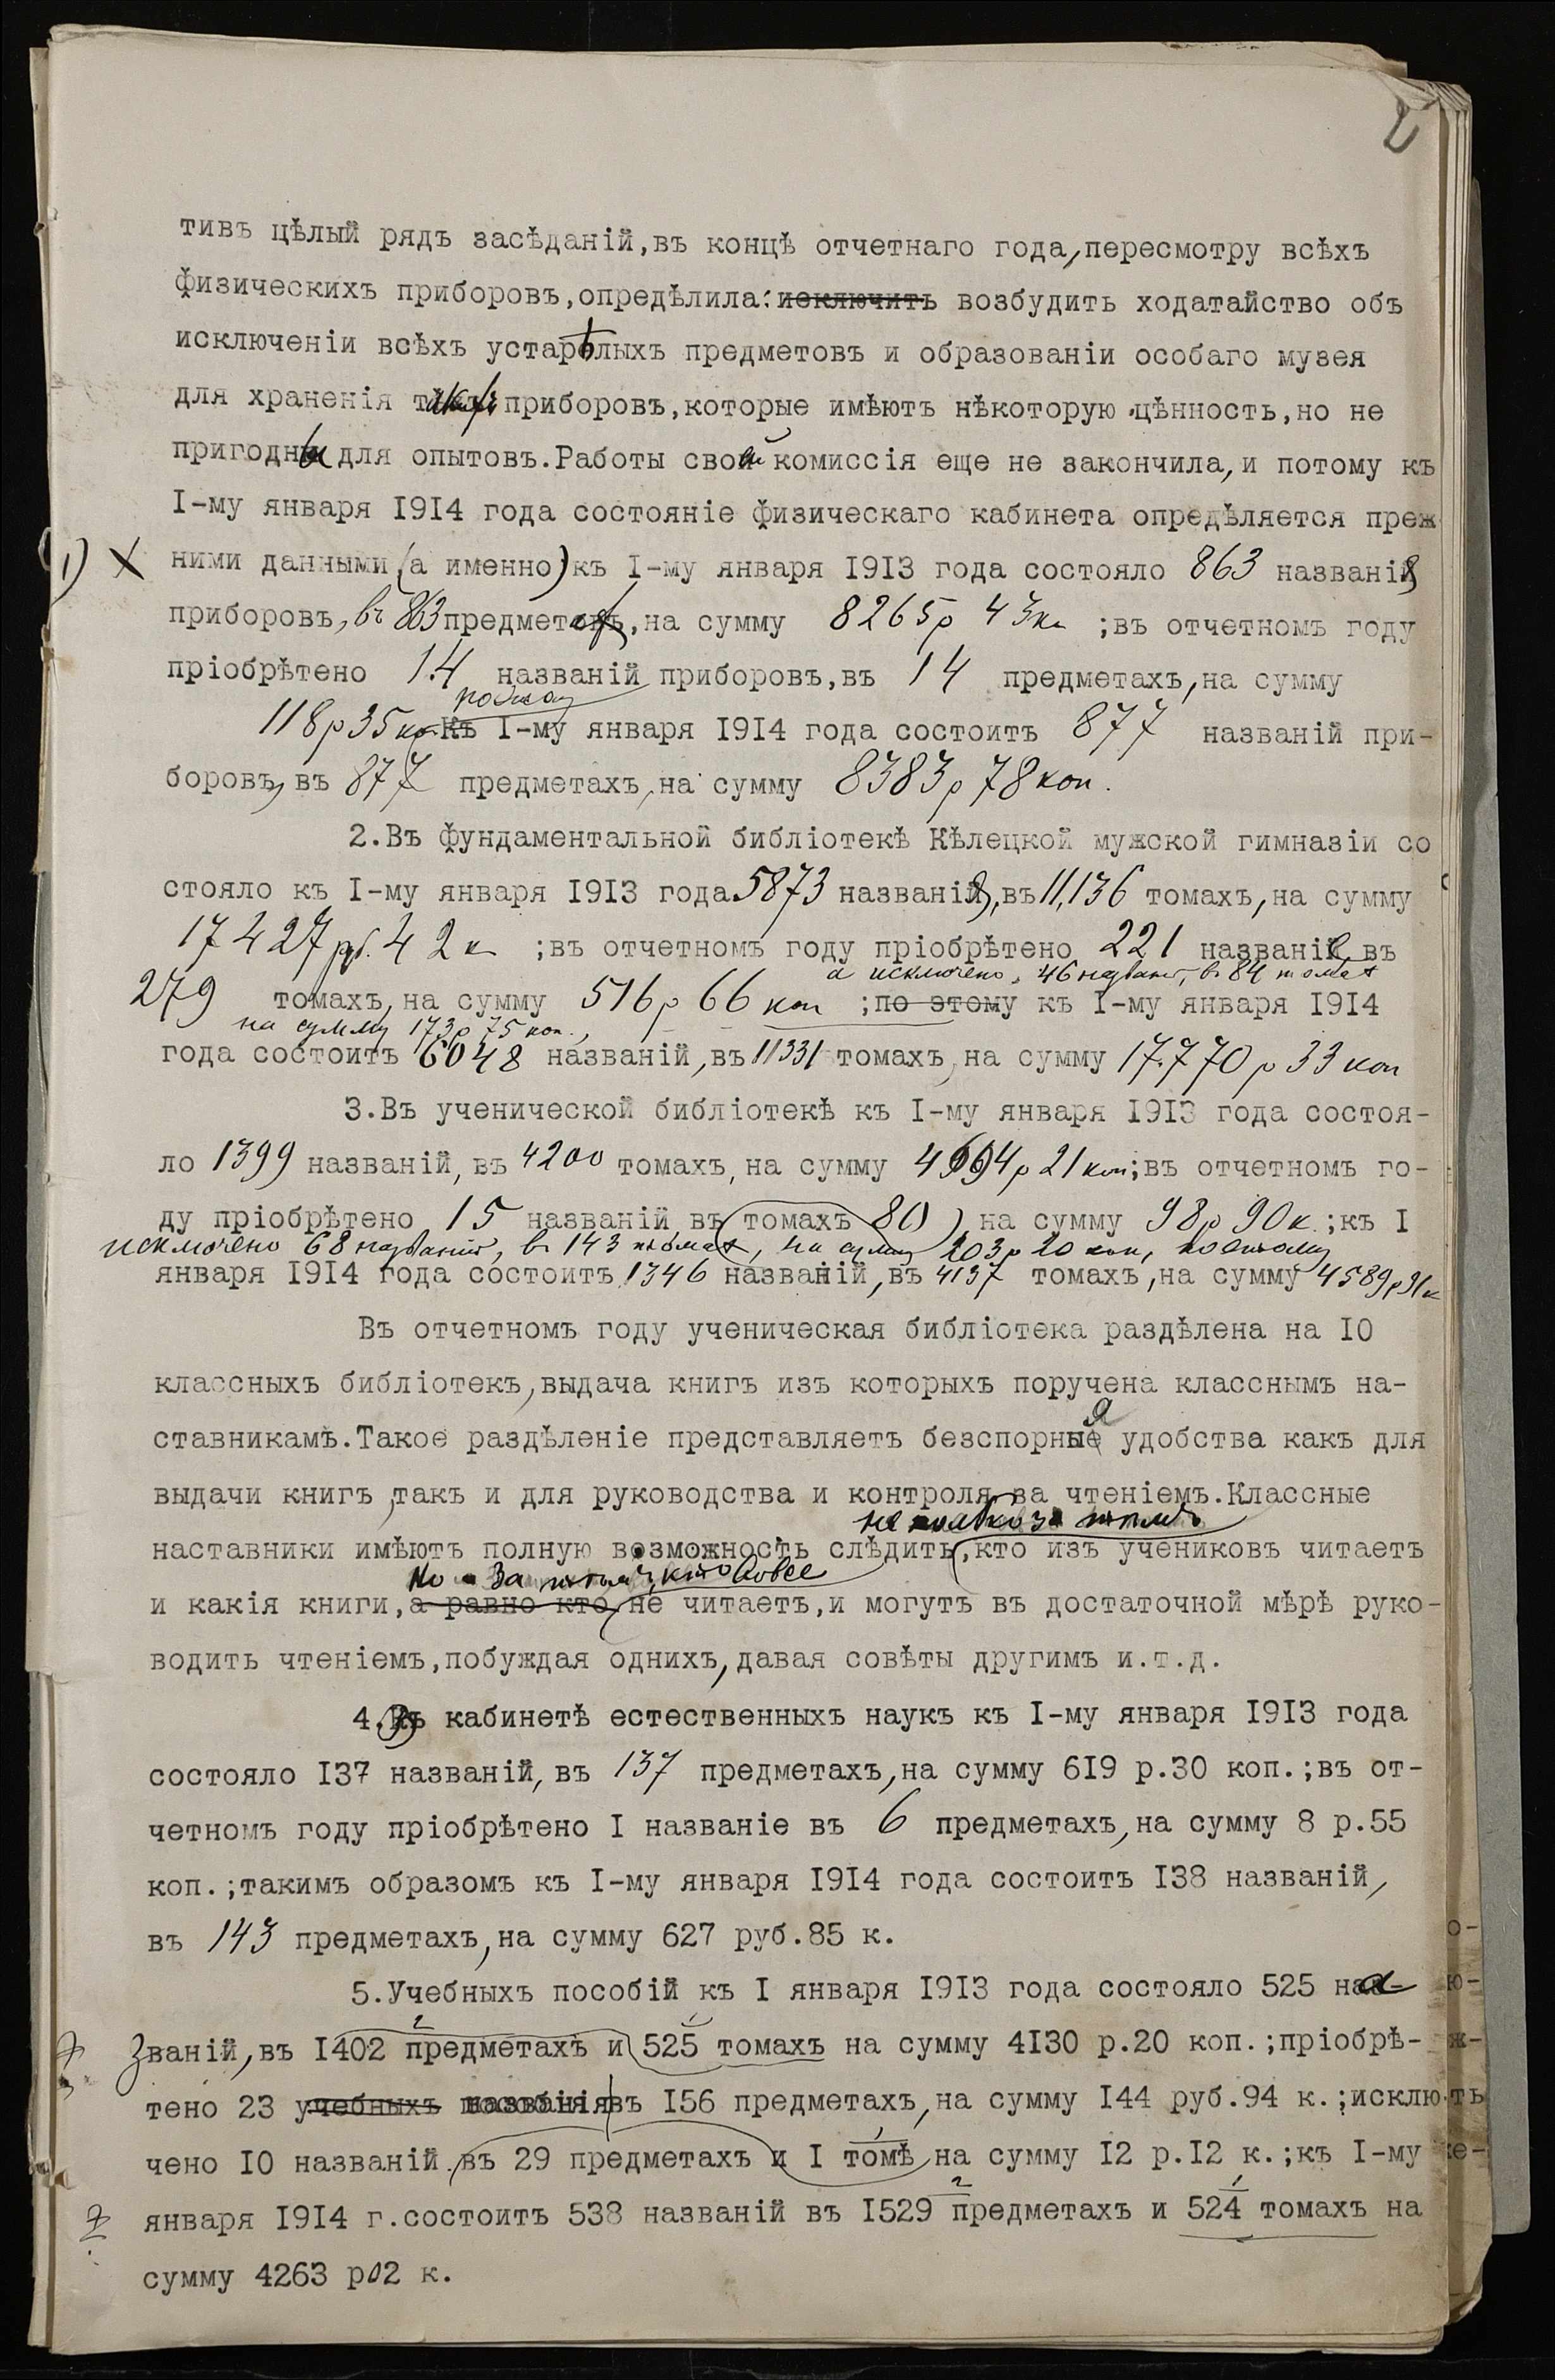 2
тивъ цѣлый рядъ засѣданій,въ концѣ отчетнаго года,пересмотру всѣхъ
физическихъ приборовъ,опредѣлила: исключить возбудить ходатайство объ
исключеніи всѣхъ устарѣлыхъ предметовъ и образованіи особаго музея
для храненія такихъ приборовъ,которые имѣютъ нѣкоторую цѣнность,но не
пригодны для опытовъ.Работы своей комиссія еще не закончила,и потому къ
I-му января I9I4 года состояніе физическаго кабинета опредѣляется преж
1) X ними данными (а именно) къ I-му января I9I3 года состояло 863 названія
приборовъ, въ 863 предметахъ,на сумму 8265 р 43 к ;въ отчетномъ году
пріобрѣтено 14 названій приборовъ,въ 14 предметахъ,на сумму
поэтому
118 р 35 к Къ I-му января I9I4 года состоитъ 877 названій при-
боровъ, въ 877 предметахъ, на сумму 8383 р 78 коп.
2.Въ фундаментальной библіотекѣ Кѣлецкой мужской гимназіи со
стояло къ I-му января I9I3 года 5873 названія, въ 11,136 томахъ,на сумму
17427 рб. 42 к ;въ отчетномъ году пріобрѣтено 221 названіе въ
а исключено, 46 названій, въ 84 томах
279 томахъ, на сумму 516 р 66 коп ;по этому къ I-му января I9I4
на сумму 173 р 75 коп.,
года состоитъ 6048 названій,въ 11331 томахъ, на сумму 17.770 р 33 коп
3.Въ ученической библіотекѣ къ I-му января I9I3 года состоя-
ло 1399 названій, въ 4200 томахъ, на сумму 4694 р 21 коп;въ отчетномъ го-
ду пріобрѣтено 15 названій въ томахъ 80, на сумму 98 р 90 к.;къ I
исключено 68 названій, въ 143 томах, на сумму 203 р 20 коп, поэтому
января I9I4 года состоитъ 1346 названій,въ 4137 томахъ,на сумму 4589 р 91 к
Въ отчетномъ году ученическая библіотека раздѣлена на I0
классныхъ библіотекъ,выдача книгъ изъ которыхъ поручена класснымъ на-
ставникамъ.Такое раздѣленіе представляетъ безспорныя удобства какъ для
выдачи книгъ,такъ и для руководства и контроля за чтеніемъ.Классные
не только за тѣмъ
наставники имѣютъ полную возможность слѣдить,кто изъ учениковъ читаетъ
но и за тѣмъ, кто вовсе
и какія книги,а равно кто не читаетъ,и могутъ въ достаточной мѣрѣ руко-
водить чтеніемъ,побуждая однихъ,давая совѣты другимъ и.т.д.
4.Въ кабинетѣ естественныхъ наукъ къ I-му января I9I3 года
состояло I37 названій,въ 137 предметахъ,на сумму 6I9 р.30 коп.;въ от-
четномъ году пріобрѣтено I названіе въ 6 предметахъ,на сумму 8 р.55
коп.;такимъ образомъ къ I-му января I9I4 года состоитъ I38 названій,
въ 143 предметахъ,на сумму 627 руб.85 к.
5.Учебныхъ пособій къ I января I9I3 года состояло 525 на-
званій,въ I402 предметахъ и 525 томахъ на сумму 4I30 р.20 коп.;пріобрѣ-
тено 23 учебныхъ названія въ I56 предметахъ,на сумму I44 руб.94 к.;исклю
чено I0 названій въ 29 предметахъ и I томѣ на сумму I2 р.I2 к.;къ I-му
января I9I4 г.состоитъ 538 названій въ I529 предметахъ и 524 томахъ на
сумму 4263 р 02 к.